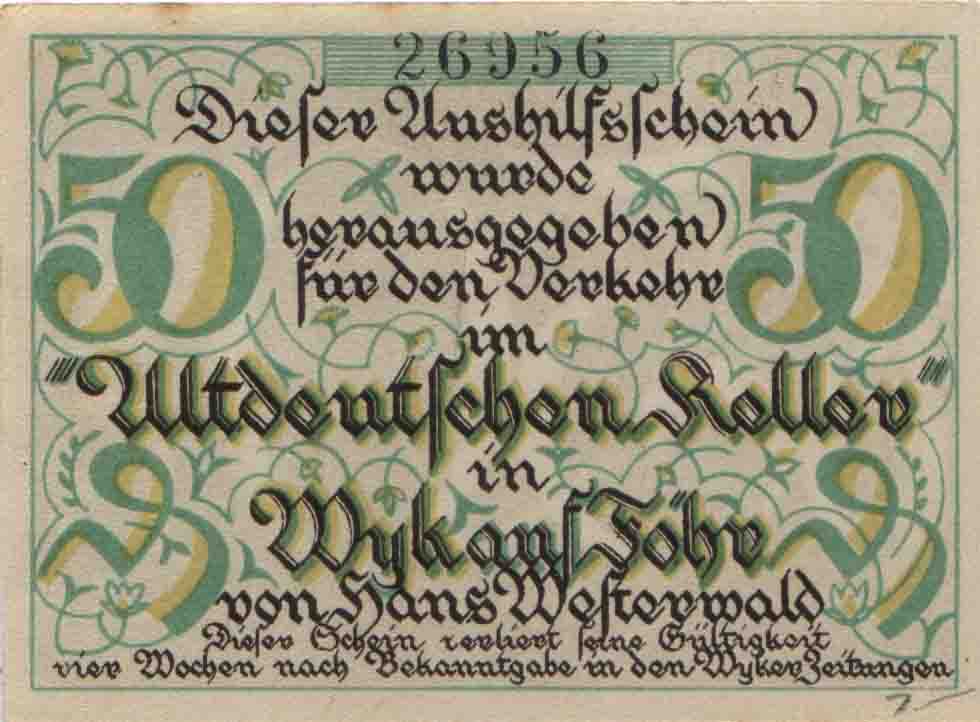 26956
Dieser Aushilfsschein
wurde
50 herausgegeben 50
für den Verkehr
im
"Altdeutschen Keller"
in
Wyk auf Föhr
von Hans Westerwald
Dieser Schein verliert seine Gültigkeit
vier Wochen nach Bekanntgabe in den Wyker Zeitungen